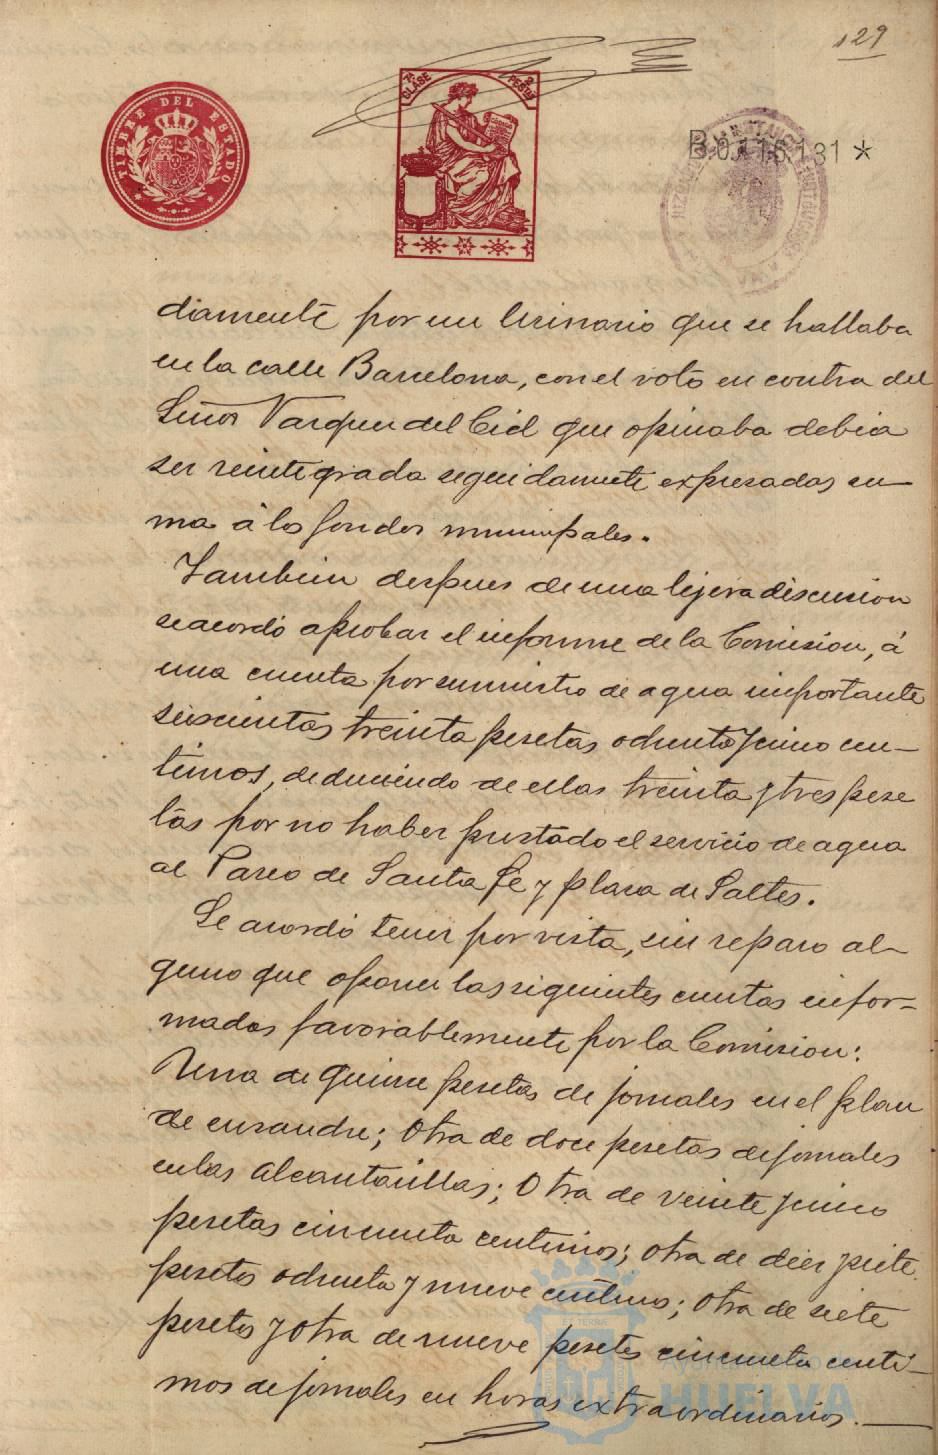 129
TIMBRE DEL ESTADO
7ª CLASE 2 PESETAS
B.0.116.131 *
diamente por un Urinario que se hallaba
en la calle Barcelona, con el voto en contra del
Señor Vazquez del Cid que opinaba debia
ser reintegrada seguidamente expresadas su-
ma á los fondos municipales.
Tambien despues de una lijera discusion
se acordó aprobar el informe de la Comision, á
una cuenta por suministro de agua importante
seiscientas treinta pesetas ochenta y cinco cen-
timos, deduciendo de ellas treinta y tres pese
tas por no haber prestado el servicio de agua
al Paseo de Santa Fé y plaza de Saltes.
Se acordó tener por vista, sin reparo al-
guno que oponer las siguientes cuentas infor-
madas favorablemente por la Comision:
Una de quince pesetas de jornales en el plan
de ensanche; Otra de doce pesetas de jornales
en las alcantarillas; Otra de veinte y cinco
pesetas cincuenta centimos; otra de diez y siete
pesetas ochenta y nueve centimos; Otra de siete
pesetas y Otra de nueve pesetas cincuenta centi-
mos de jornales en horas extraordinarias.
HUELVA